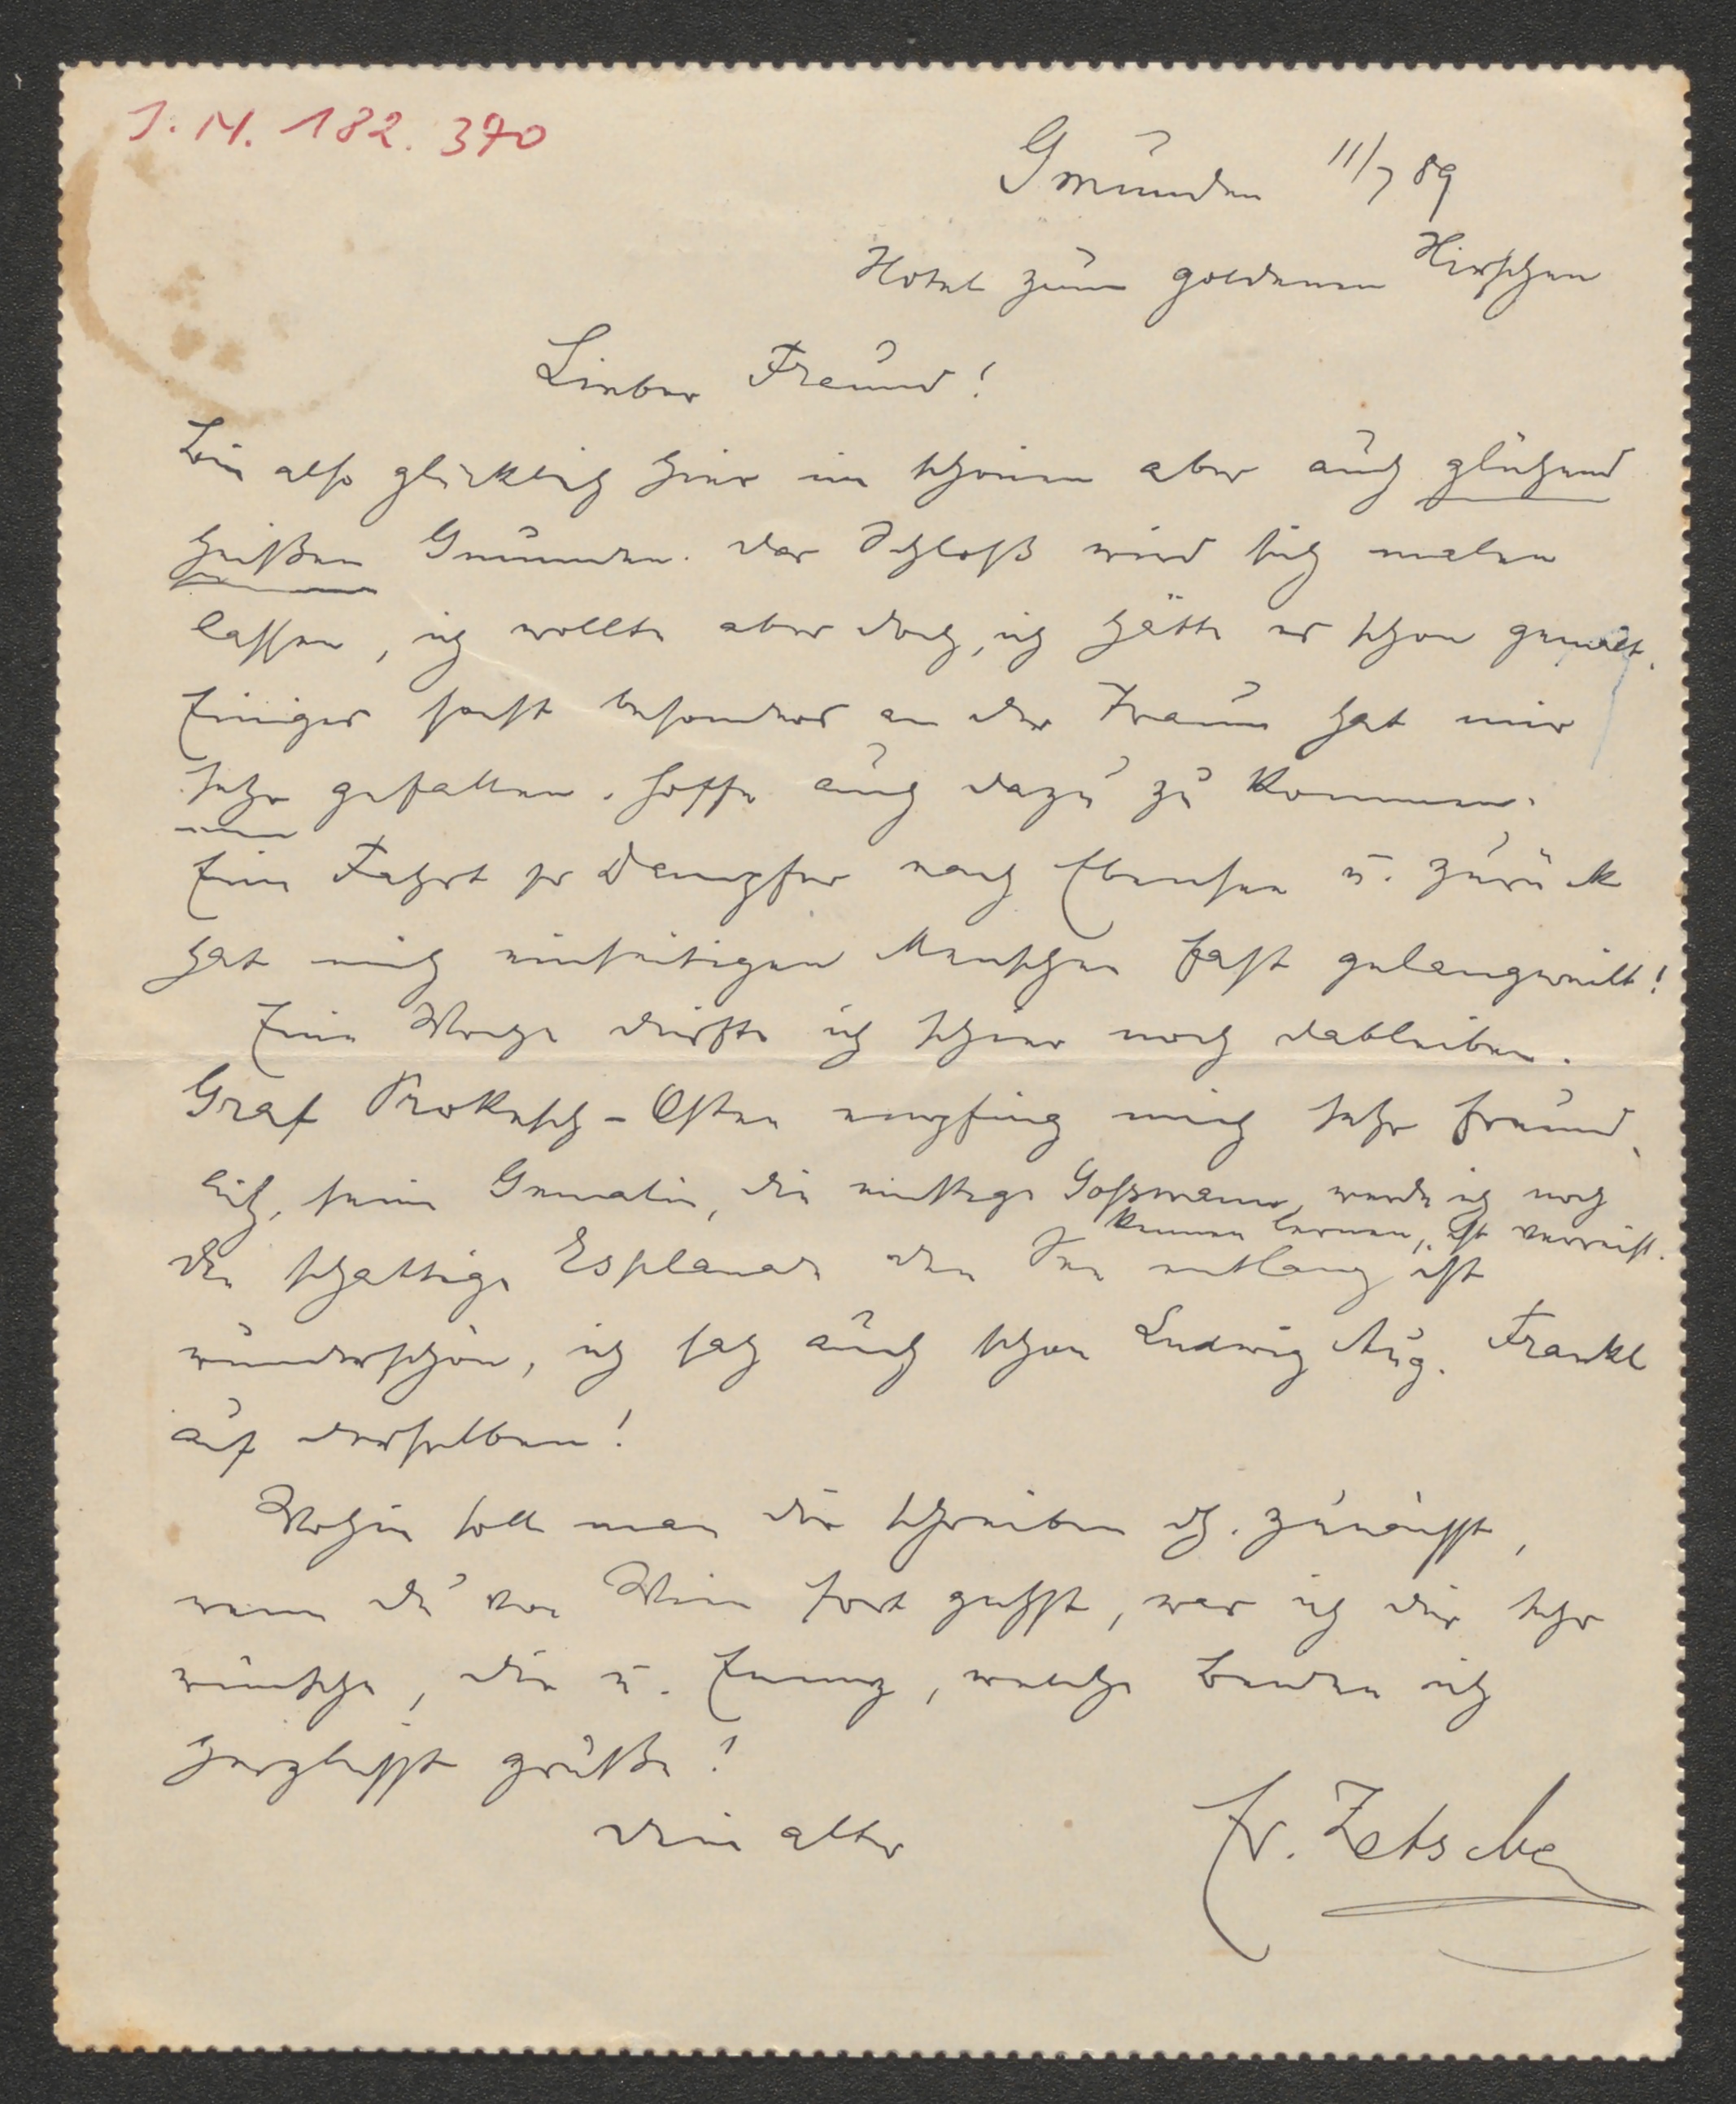 J. N. 182.370
Gmunden 11/7 89
Hotel zum goldenen Hirschen
Lieber Freund!
Bin also glücklich hier im schönen aber auch glühend
heißen Gmunden. Das Schloß wird sich malen
lassen, ich wollte aber doch, ich hätte es schon gemalt.
Einiges sonst besonders an der Traun hat mir
sehr gefallen. hoffe auch dazu zu kommen.
Eine Fahrt pr Dampfer nach Ebensee u. zurück
hat mich einseitigen Menschen fast gelangweilt!
Eine Woche dürfte ich schier noch dableiben.
Graf Prokesch-Osten empfing mich sehr freund
lich, seine Gemalin, die einstige Goßmann, werde ich noch
kennen lernen, ist verreist.
Die schattige Esplanade den See entlang ist
wunderschön, ich sah auch schon Ludwig Aug. Frankl
auf derselben!
Wohin soll man dir schreiben zunächst,
wenn du von Wien fort gehst, was ich dir sehr
wünsche, dir u. Emmy, welche beiden ich
herzlichst grüße!
dein alter
Ed. Zetsche